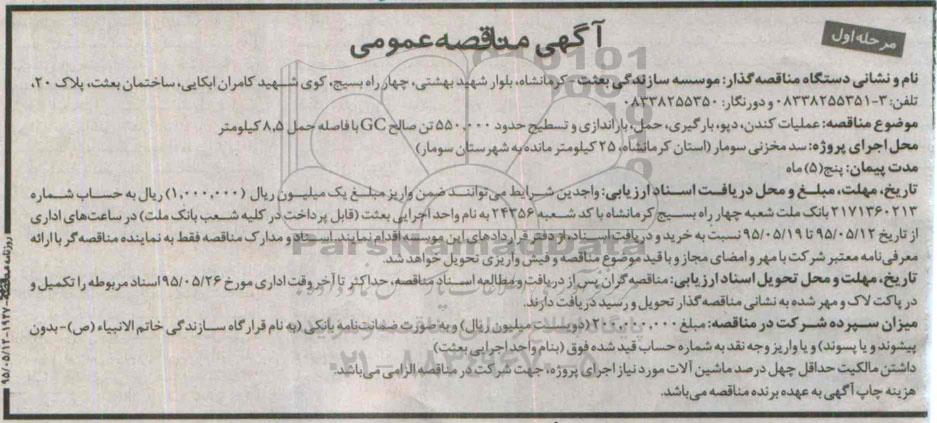 مرحله اول
آگهی مناقصه عمومی
نام و نشانی دستگاه مناقصه‌گذار: موسسه سازندگی بعثت-کرمانشاه، بلوار شهید بهشتی، چهار راه بسیج، کوی شهید کامران ابکایی، ساختمان بعثت، پلاک ۲۰،
تلفن: ۳-۰۸۳۳۸۲۵۵۳۵۱ و دورنگار: ۰۸۳۳۸۲۵۵۳۵۰
موضوع مناقصه: عملیات کندن، دپو، بارگیری، حمل، باراندازی و تسطیح حدود ۵۵۰٫۰۰۰ تن صالح GC با فاصله حمل ۸٫۵ کیلومتر
محل اجرای پروژه: سد مخزنی سومار (استان کرمانشاه، ۲۵ کیلومتر مانده به شهرستان سومار)
مدت پیمان: پنج(۵) ماه
تاریخ، مهلت، مبلغ و محل دریافت اسناد ارزیابی: واجدین شرایط می‌توانند ضمن واریز مبلغ یک میلیون ریال (۱٫۰۰۰٫۰۰۰) ریال به حساب شماره
۲۱۷۱۳۶۰۲۱۳ بانک ملت شعبه چهار راه بسیج کرمانشاه با کد شعبه ۲۴۳۵۶ به نام واحد اجرایی بعثت (قابل پرداخت در کلیه شعب بانک ملت) در ساعت‌های اداری
از تاریخ ۹۵/۰۵/۱۲ تا ۹۵/۰۵/۱۹ نسبت به خرید و دریافت اسناد، از دفتر قراردادهای این موسسه اقدام نمایند. اسناد و مدارک مناقصه فقط به نماینده مناقصه‌گر با ارائه
معرفی‌نامه معتبر شرکت با مهر و امضای مجاز و با قید موضوع مناقصه و فیش واریزی تحویل خواهد شد.
تاریخ، مهلت و محل تحویل اسناد ارزیابی: مناقصه‌گران پس از دریافت و مطالعه اسناد مناقصه، حداکثر تا آخر وقت اداری مورخ ۹۵/۰۵/۲۶ اسناد مربوطه را تکمیل و
در پاکت لاک و مهر شده به نشانی مناقصه‌گذار تحویل و رسید دریافت دارند.
میزان سپرده شرکت در مناقصه: مبلغ ۲۰۰٫۰۰۰٫۰۰۰ (دویست میلیون ریال) و به صورت ضمانت‌نامه بانکی (به نام قرارگاه سازندگی خاتم الانبیاء (ص)-بدون
پیشوند و یا پسوند) و یا واریز وجه نقد به شماره حساب قید شده فوق (بنام واحد اجرایی بعثت)
داشتن مالکیت حداقل چهل درصد ماشین آلات مورد نیاز اجرای پروژه، جهت شرکت در مناقصه الزامی می‌باشد.
هزینه چاپ آگهی به عهده برنده مناقصه می‌باشد.
ParsNamadData